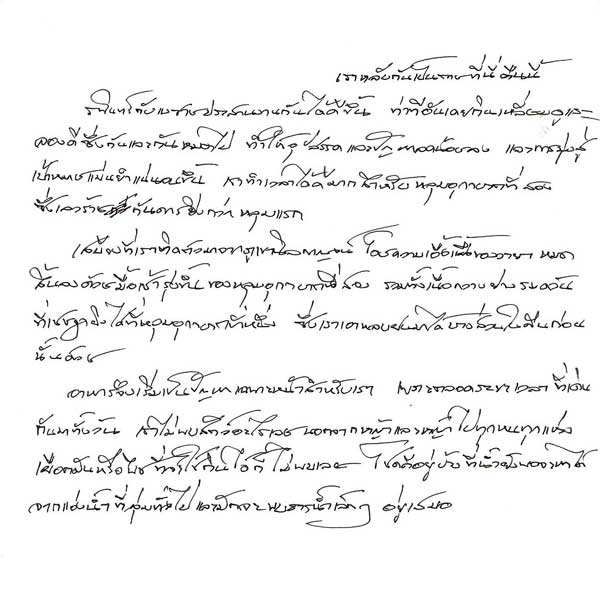 เราหลับกันเป็นตายที่นี่คืนนี้
รพินทร์กับเชษฐาประสานงานกันได้ดีขึ้น ท่าทีอันเคยกินเหลี่ยมคูและ
ลองดีซึ่งกันและกันหมดไป ทำให้อุปสรรคและปัญหาลดน้อยลง และการมุ่งสู่
เป้าหมายแม่นยำแน่นอนขึ้น เราทำเวลาได้ดีมากสำหรับหลุมอุกกาบาตที่สอง
ซึ่งเลวร้ายกันดารยิ่งกว่าหลุมแรก
เสบียงที่เราติดตัวมาจากภูเขานิลกาญจน์ โดยความเอื้อเฟื้อของวายา หมดา
สิ้นลงด้วยมื้อเช้ารุ่งขึ้นของหลุมอุกกาบาตที่สอง รวมทั้งเนื้อกวางย่างรมควัน
ที่เชษฐายิงได้ที่หลุมอุกกาบาตที่หนึ่ง ซึ่งเราเอาหลบฝนมาได้บางส่วนในคืนก่อน
นั้นด้วย
อาหารจึงเริ่มเป็นปัญหาเฉพาะหน้าสำหรับเรา เพราะตลอดระยะเวลาที่เดิน
กันมาทั้งวัน เราไม่พบสัตว์อะไรเลย นอกจากหญ้าและหญ้าไปทุกหนทุกแห่ง
เผือกมันหรือพืชที่จะใช้กินได้ก็ไม่พบเลย โชคดีอยู่บ้างที่น้ำยังพอจะหาได้
จากแอ่งน้ำที่ชุ่มทั่วไป และมักจะพบธารน้ำเล็กๆ อยู่เสมอ